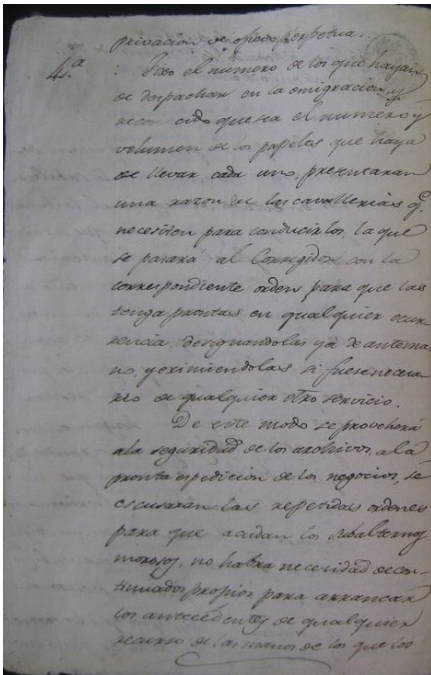 privacion de oficio perpetua.
4.ª : Fixo el numero de los que hayan
de despachar en la emigracion, y
reconocido que sea el numero y
volumen de los papeles que haya
de llevar cada uno, presentaran
una razon de las cavallerias q.e
necesiten para conducirlos, la que
se pasará al Corregidor con la
correspondiente orden para que las
tenga prontas en qualquier ocur-
rencia, designandolas ya de antema-
no, y eximiendolas si fuere necesa-
rio de qualquier otro servicio.
De este modo se proveherá
a la seguridad de los archivos, a la
pronta espedicion de los negocios, se
escusaran las repetidas ordenes
para que acudan los subalternos
morosos, no habra necesidad de con-
tinuados propios para arrancar
los antecedentes de qualquier
recurso de las manos de los que los